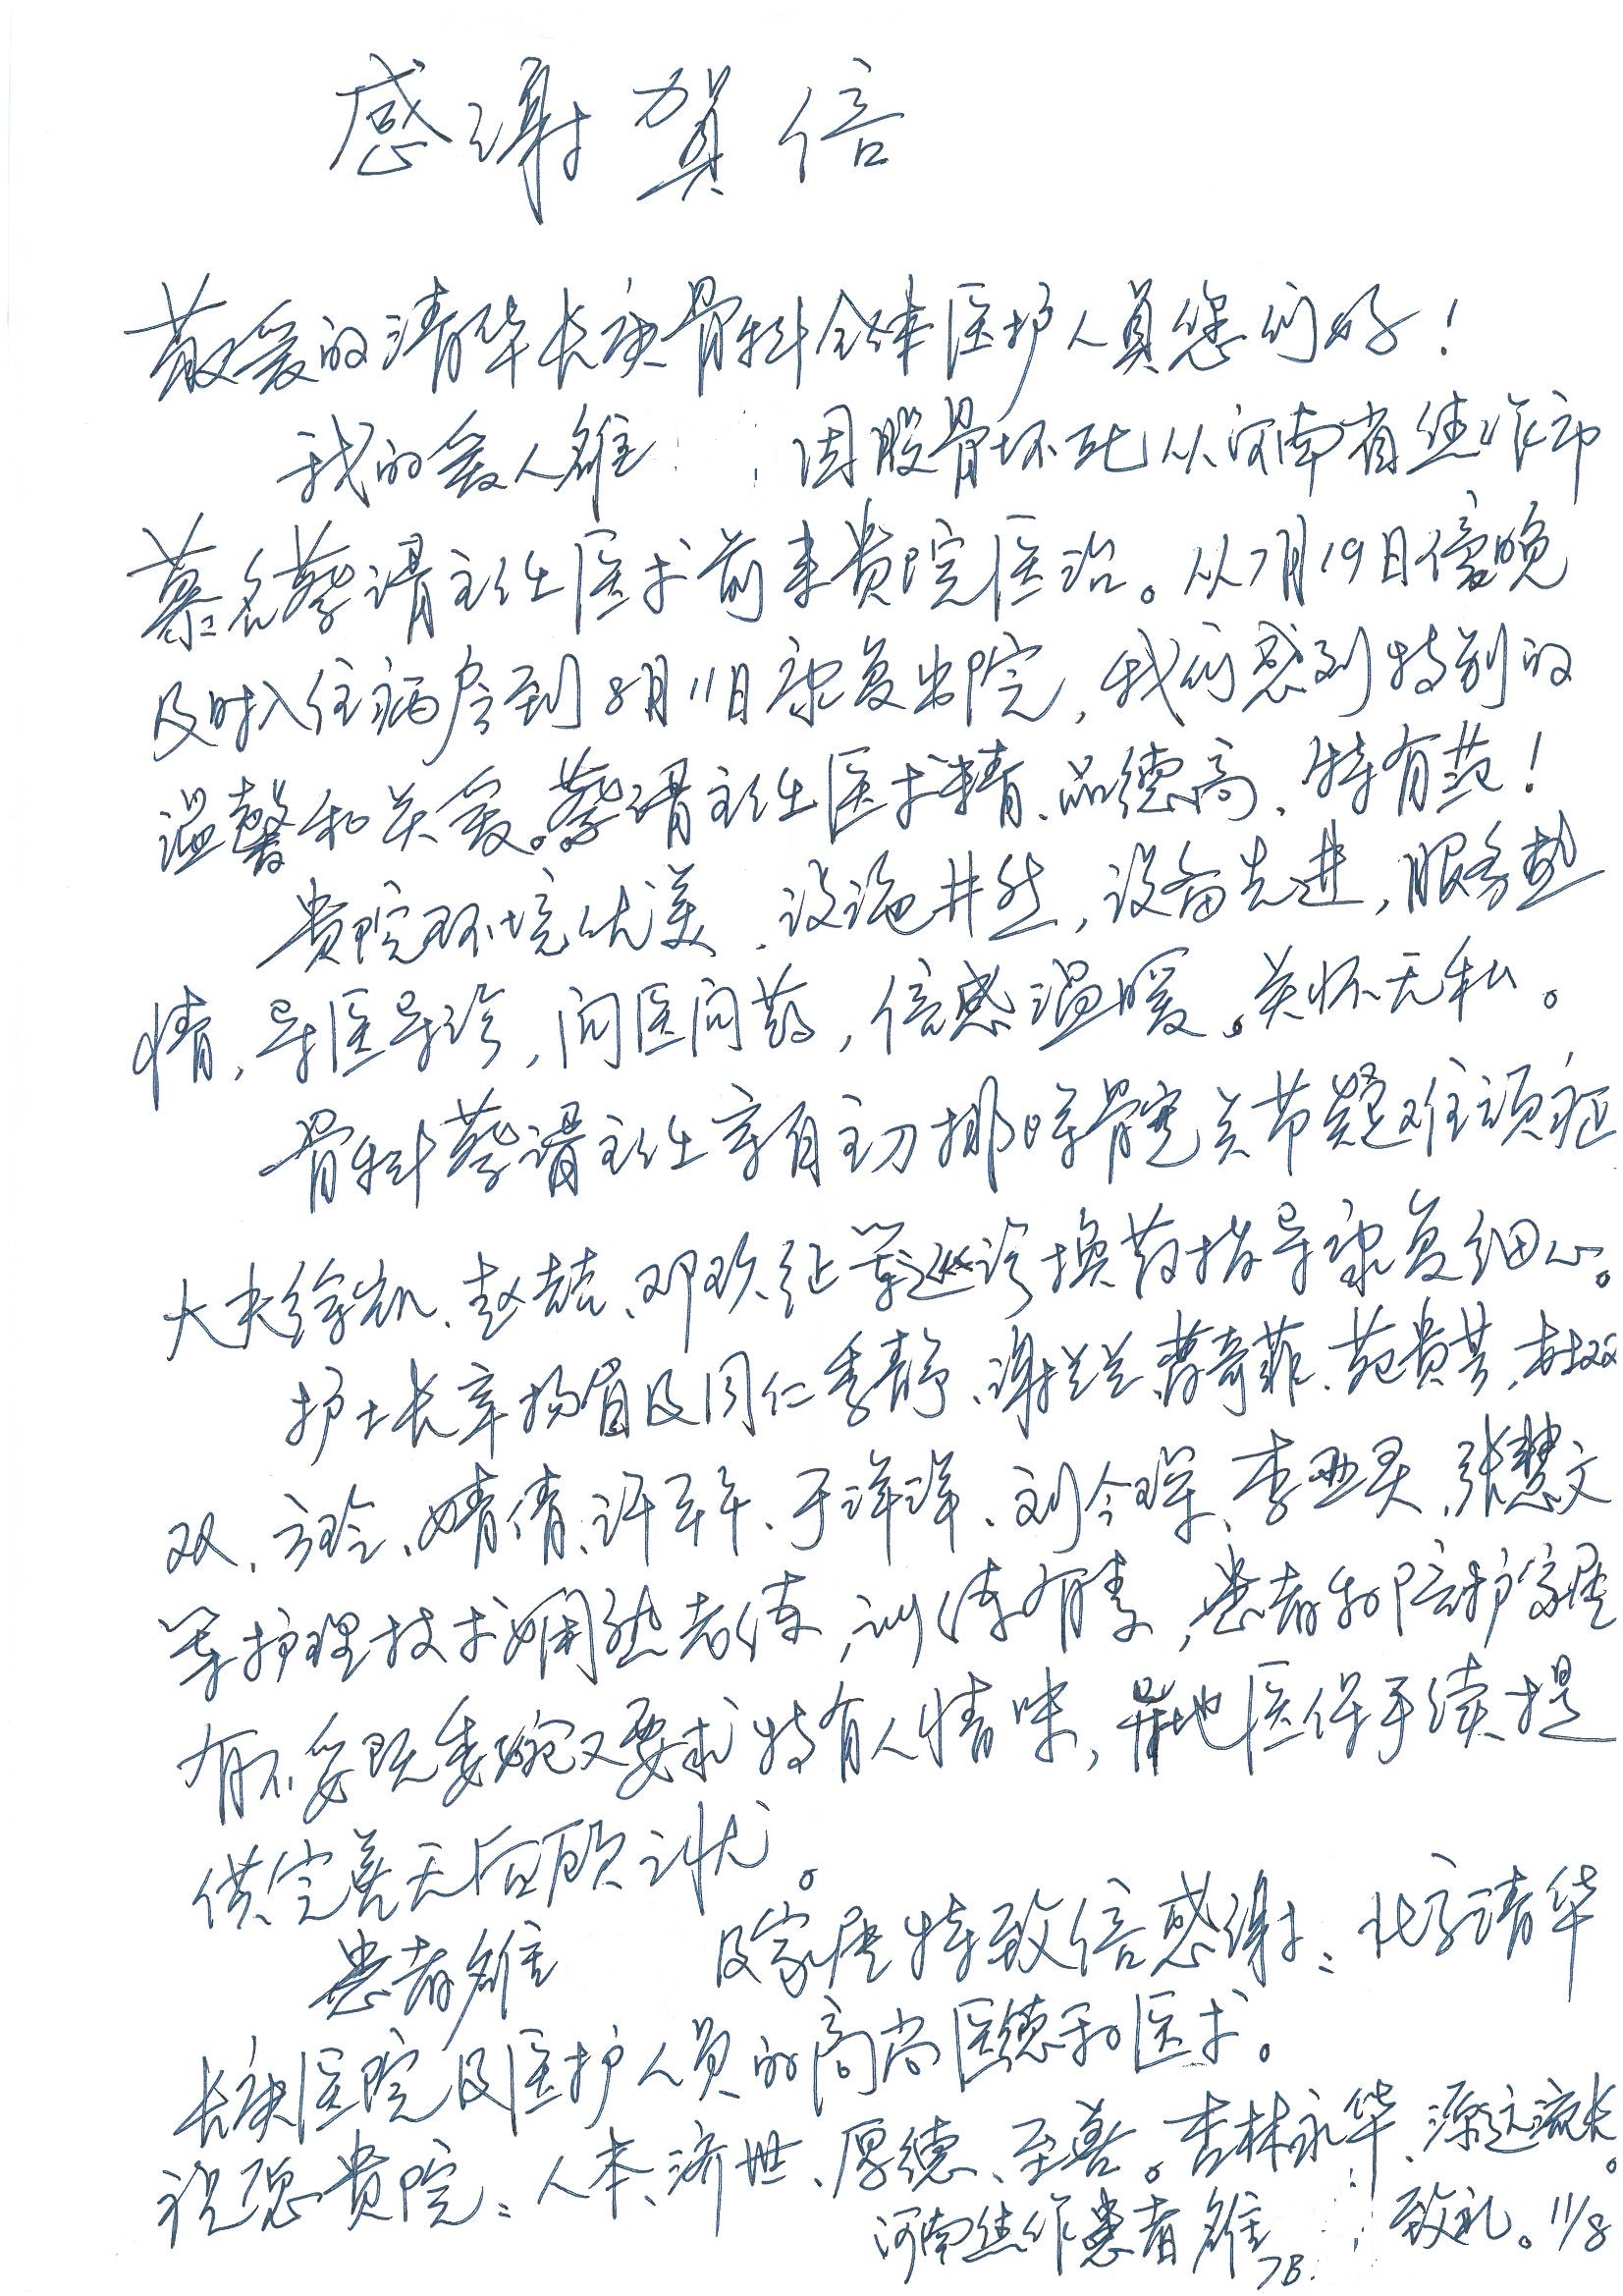 感谢贺信
敬爱的清华长庚骨科全体医护人员您们好！
我的爱人雒 因股骨坏死从河南省焦作市
慕名蔡谞主任医术前来贵院医治。从7月19日傍晚
及时入住病房到8月11日康复出院，我们感到特别的
温馨和关爱。蔡谞主任医术精、品德高、特有范！
贵院环境优美、设施井然，设备先进，服务热
情，导医导诊，问医问药，倍感温暖。关怀无私。
骨科蔡谞主任亲自主刀 髋关节疑难顽症
大夫徐凯、赵喆、邓玖征等巡诊换药指导康复细心。
护士长章扬眉及同仁季静、谢兰兰、曹奇菲、苑贵其、杜双
双、方玲、婧倩、许军军、于洋洋、刘令琛、李亚灵、张慧文
等护理技术娴熟老练，训练有素，患者和陪护家属
有不妥既委婉又要求特有人情味，异地医保手续提
供完善无后顾之忧。
患者雒 及家属特致倍感谢：北京清华
长庚医院及医护人员的高尚医德和医术。
祝愿贵院：人本、济世、厚德、至善。杏林永华、源远流长。
河南焦作患者雒 7B. 致礼。11/8